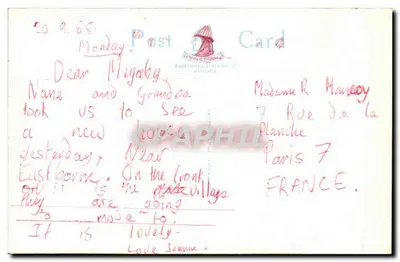 20.9.65.
Monday.
Post Card
Dear
Nana and Grandpa
took us to See
a new house
yesterday, Near
Eastborne. On the front
of it is the village
they are going
to move to.
It is lovely.
Love
Madame R
7 Rue de la
Planche
Paris 7
FRANCE.
DELCAMPHIL